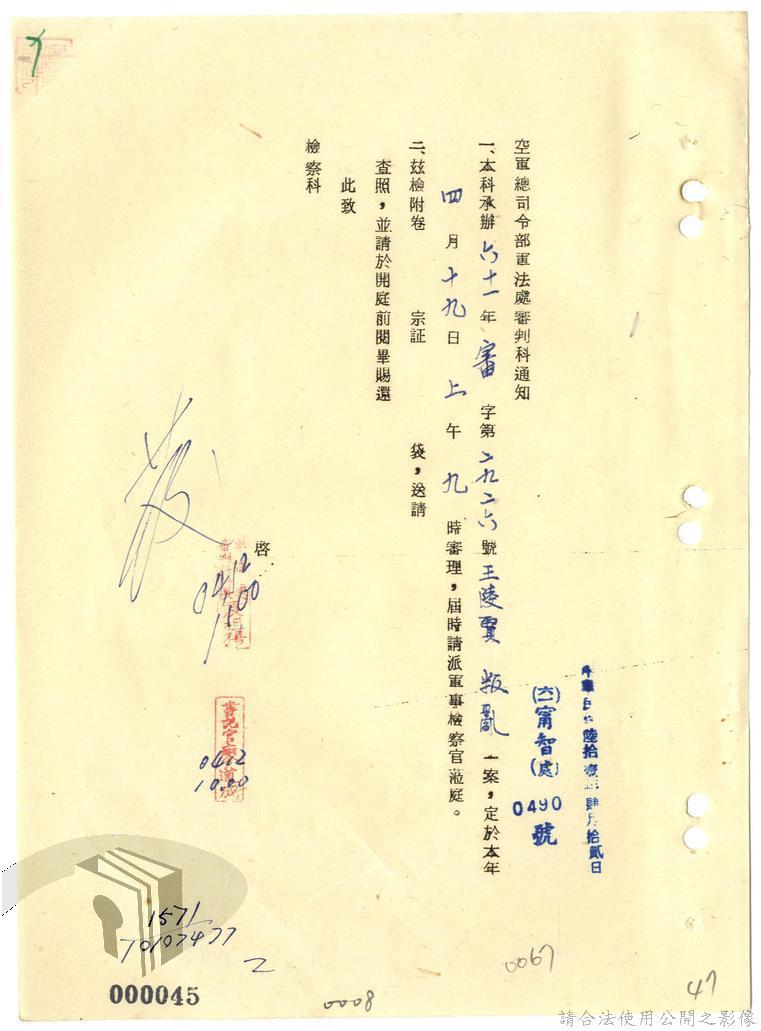 中華民國陸拾壹年肆月拾貳日
(六一)甯智(處)
0490號
空軍總司令部軍法處審判科通知
一、本科承辦六十一年審字第二九二六號王陵賢叛亂一案，定於本年
四月十九日上午九時審理，屆時請派軍事檢察官蒞庭。
二、茲檢附卷 宗証 袋，送請
查照，並請於開庭前閱畢賜還
此致
檢察科
啓
0412
1100
書記官
0412
1000
1571
70107477
2
000045
0008
0067
47
請合法使用公開之影像